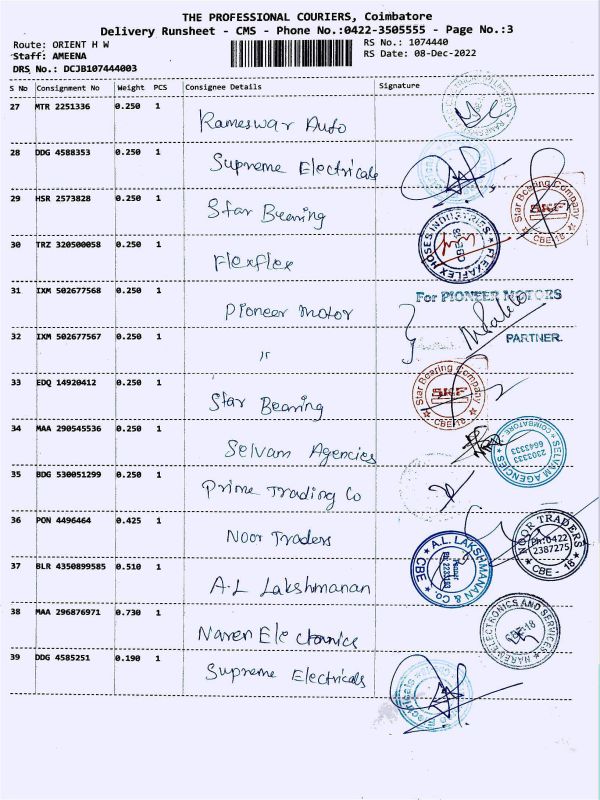 THE PROFESSIONAL COURIERS, Coimbatore
Delivery Runsheet - CMS - Phone No.:0422-3505555 - Page No.:3
Route: ORIENT H W
RS No.: 1074440
Staff: AMEENA
RS Date: 08-Dec-2022
DRS No.: DCJB107444003
S No Consignment No Weight PCS Consignee Details Signature
27 MTR 2251336 0.250 1 Rameswar Auto
28 DDG 4588353 0.250 1 Supreme Electricals
29 HSR 2573828 0.250 1 Star Bearing
Star Bearing Company
SKF
CBE-18
30 TRZ 320500058 0.250 1 Flexflex
FLEXAFLEX HOSES INDUSTRIES
31 IXM 502677568 0.250 1 Pioneer motor
For PIONEER MOTORS
32 IXM 502677567 0.250 1 "
PARTNER.
33 EDQ 14920412 0.250 1 Star Bearing
Star Bearing Company
SKF
CBE-18
34 MAA 290545536 0.250 1 Selvam Agencies
SELVAM AGENCIES
COIMBATORE
2303333
6643333
35 BDG 530051299 0.250 1 Prime Trading Co
36 PON 4496464 0.425 1 Noor Traders
NOOR TRADERS
Ph:0422
2387275
CBE - 18
37 BLR 4350899585 0.510 1 A.L Lakshmanan
A.L. LAKSHMANAN & CO.
CBE
38 MAA 296876971 0.730 1 Naren Electronics
NAREN ELECTRONICS AND SERVICES
CBE-18
39 DDG 4585251 0.190 1 Supreme Electricals